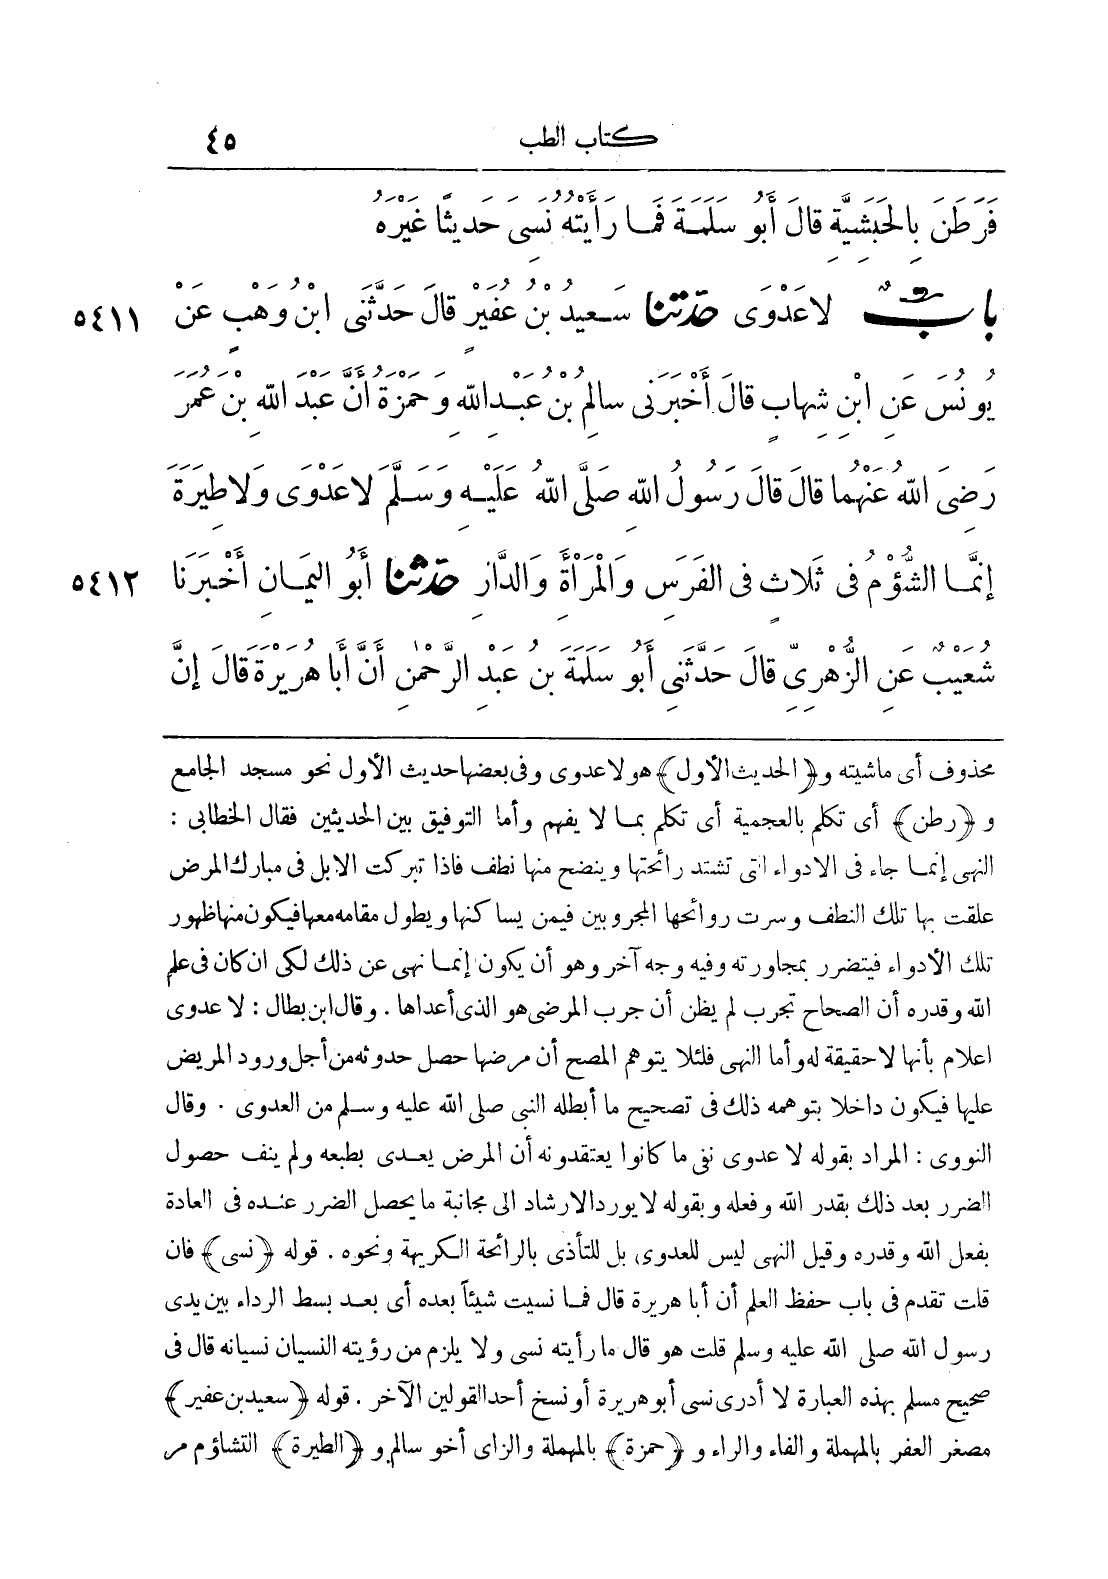 ٤٥ كتاب الطب
فَرَطَنَ بِالْحَبَشِيَّةِ قَالَ أَبُو سَلَمَةَ فَمَا رَأَيْتُهُ نَسِىَ حَدِيثًا غَيْرَهُ
بَابٌ لَا عَدْوَى حَدَّثَنَا سَعِيدُ بْنُ عُفَيْرٍ قَالَ حَدَّثَنِى ابْنُ وَهْبٍ عَنْ ٥٤١١
يُونُسَ عَنِ ابْنِ شِهَابٍ قَالَ أَخْبَرَنِى سَالِمُ بْنُ عَبْدِ اللهِ وَحَمْزَةُ أَنَّ عَبْدَ اللهِ بْنَ عُمَرَ
رَضِىَ اللهُ عَنْهُمَا قَالَ قَالَ رَسُولُ اللهِ صَلَّى اللهُ عَلَيْهِ وَسَلَّمَ لَا عَدْوَى وَلَا طِيَرَةَ
إِنَّمَا الشُّؤْمُ فِى ثَلَاثٍ فِى الْفَرَسِ وَالْمَرْأَةِ وَالدَّارِ حَدَّثَنَا أَبُو الْيَمَانِ أَخْبَرَنَا ٥٤١٢
شُعَيْبٌ عَنِ الزُّهْرِىِّ قَالَ حَدَّثَنِى أَبُو سَلَمَةَ بْنُ عَبْدِ الرَّحْمٰنِ أَنَّ أَبَا هُرَيْرَةَ قَالَ إِنَّ
محذوف أى ماشيته و ﴿الحديث الأول﴾ هو لاعدوى وفى بعضها حديث الأول نحو مسجد الجامع
و ﴿رطن﴾ أى تكلم بالعجمية أى تكلم بما لا يفهم وأما التوفيق بين الحديثين فقال الخطابى :
النهى إنما جاء فى الادواء التى تشتد رائحتها وينضح منها نطف فاذا تبركت الابل فى مبارك المرض
علقت بها تلك النطف وسرت روائحها المجروبين فيمن يساكنها ويطول مقامه معها فيكون منها ظهور
تلك الأدواء فيتضرر بمجاورته وفيه وجه آخر وهو أن يكون إنما نهى عن ذلك لكى ان كان فى علم
الله وقدره أن الصحاح تجرب لم يظن أن جرب المرضى هو الذى أعداها . وقال ابن بطال : لا عدوى
اعلام بأنها لا حقيقة له وأما النهى فلئلا يتوهم المصح أن مرضها حصل حدوثه من أجل ورود المريض
عليها فيكون داخلا بتوهمه ذلك فى تصحيح ما أبطله النبى صلى الله عليه وسلم من العدوى . وقال
النووى : المراد بقوله لا عدوى نفى ما كانوا يعتقدونه أن المرض يعدى بطبعه ولم ينف حصول
الضرر بعد ذلك بقدر الله وفعله وبقوله لا يورد الارشاد الى مجانبة ما يحصل الضرر عنده فى العادة
بفعل الله وقدره وقيل النهى ليس للعدوى بل للتأذى بالرائحة الكريهة ونحوه . قوله ﴿نسى﴾ فان
قلت تقدم فى باب حفظ العلم أن أبا هريرة قال فما نسيت شيئاً بعده أى بعد بسط الرداء بين يدى
رسول الله صلى الله عليه وسلم قلت هو قال ما رأيته نسى ولا يلزم من رؤيته النسيان نسيانه قال فى
صحيح مسلم بهذه العبارة لا أدرى نسى أبو هريرة أو نسخ أحد القولين الآخر . قوله ﴿سعيد بن عفير﴾
مصغر العفر بالمهملة والفاء والراء و ﴿حمزة﴾ بالمهملة والزاى أخو سالم و ﴿الطيرة﴾ التشاؤم من